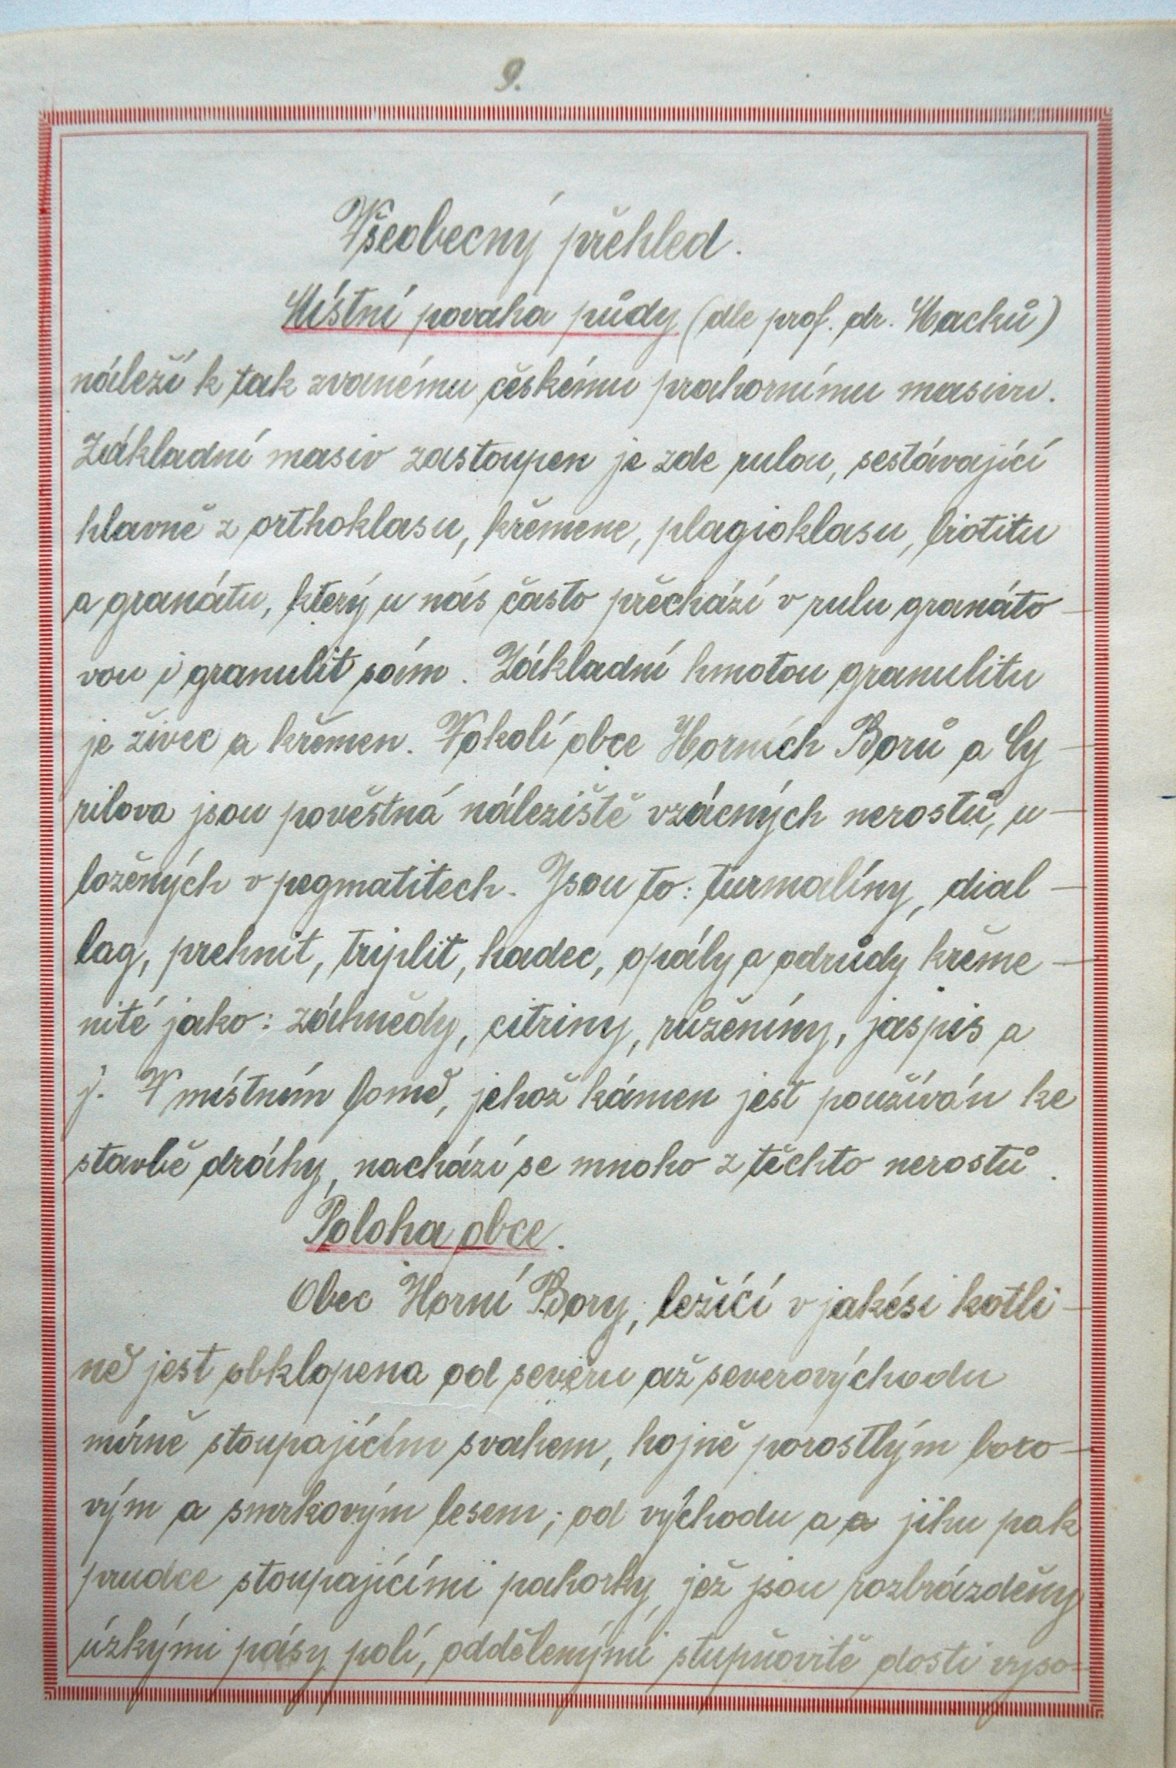 9.
Všeobecný přehled.
Místní povaha půdy (dle prof. dr. Macků)
náleží k tak zvanému českému prahornímu masivu.
Základní masiv zastoupen je zde rulou, sestávající
hlavně z orthoklasu, křemene, plagioklasu, biotitu
a granátu, který u nás často přechází v rulu granáto-
vou i granulit sám. Základní hmotou granulitu
je živec a křemen. V okolí obce Horních Borů a Cy-
rilova jsou pověstná náleziště vzácných nerostů, u-
ložených v pegmatitech. Jsou to: turmalíny, dial-
lag, prehnit, triplit, hadec, opály a odrůdy křeme-
nité jako: záhnědy, citriny, růženíny, jaspis a
j. V místním lomě, jehož kámen jest používán ke
stavbě dráhy, nachází se mnoho z těchto nerostů.
Poloha obce.
Obec Horní Bory, ležící v jakési kotli-
ně jest obklopena od severu až severovýchodu
mírně stoupajícím svahem, hojně porostlým boro-
vým a smrkovým lesem; od východu a a jihu pak
prudce stoupajícími pahorky, jež jsou rozbrázděny
úzkými pásy polí, oddělenými stupňovitě dosti vyso-